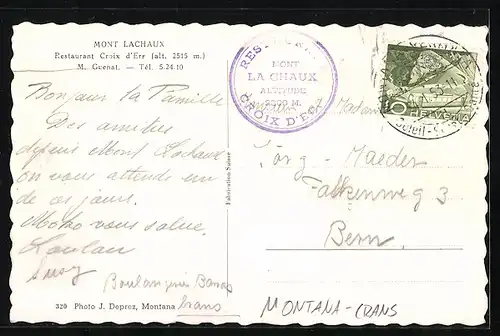 MONT LACHAUX
Restaurant Croix d'Err (alt. 2515 m.)
M. Guenat. — Tél. 5.24.10
Bonjour la Famille
Des amities
depuis Mont Lachaux
on vous attend un
de ces jours.
vous salue.
Boulangerie
320 Photo J. Deprez, Montana
Crans
Fabrication Suisse
MONT
LA CHAUX
ALTITUDE
M.
CROIX D'E
et Madame
Jörg - Maeder
Falkenweg 3
Bern.
MONTANA-CRANS
10
HELVETIA
Soleil